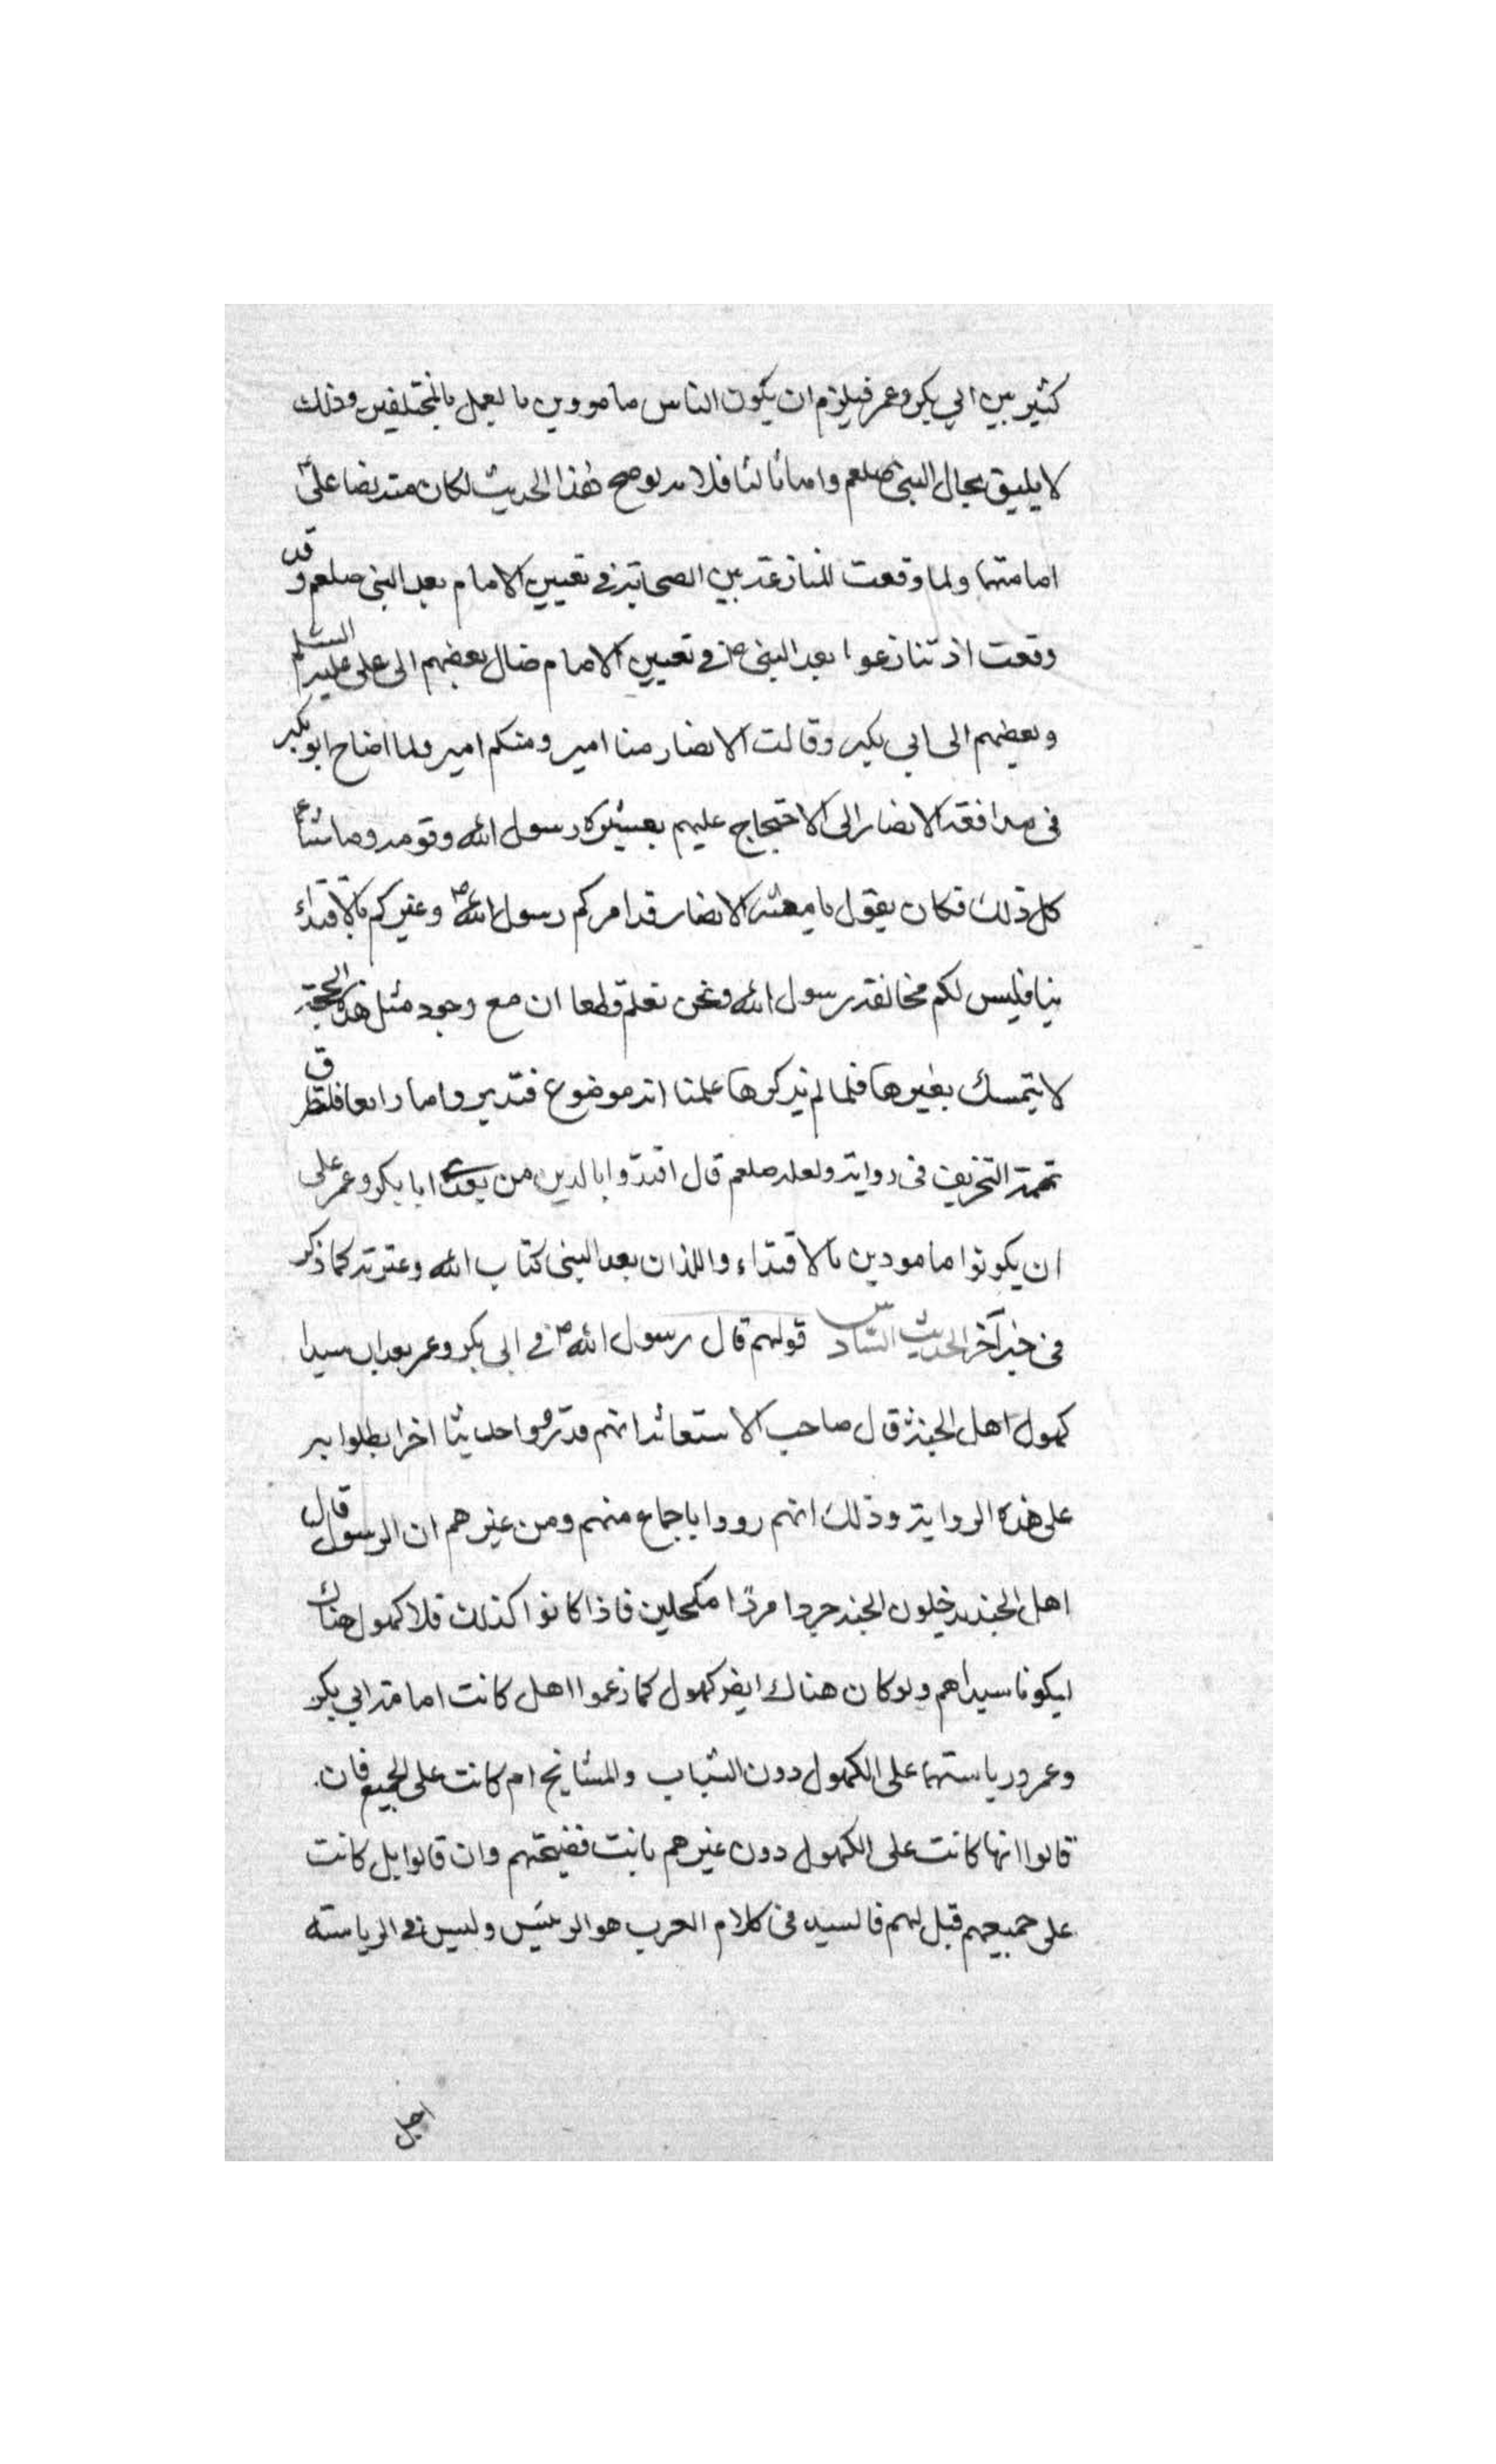 كثير بين ابي بكر وعمر فيلزم ان يكون الناس مامورين بالعمل بالمختلفين وذلك
لا يليق بحال النبي صلعم واما ثالثا فلانه لو صح هذا الحديث لكان نصا على
امامتهما ولما وقعت المنازعة بين الصحابة في تعيين الامام بعد النبي صلعم وقد
وقعت اذ تنازعوا بعد النبي ص في تعيين الامام فمال بعضهم الى علي عليه السلم
وبعضهم الى ابي بكر وقالت الانصار منا امير ومنكم امير ولما احتاج ابو بكر
في مدافعة الانصار الى الاحتجاج عليهم بعشيرة رسول الله وقومه وما شا
كل ذلك فكان يقول يا معشر الانصار قد امركم رسول الله ص وغيركم بالاقتداء
بنا فليس لكم مخالفة رسول الله ونحن نعلم قطعا ان مع وجود مثل هذه الحجة
لا يتمسك بغيرها فلما لم يذكروها علمنا انه موضوع فتدبر واما رابعا فلتطرق
تهمة التحريف في رواية ولعله صلعم قال اقتدوا بالذين من بعدي ابا بكر وعمر على
ان يكونوا مامورين بالاقتداء واللذان بعد النبي كتاب الله وعترته كما ذكر
في خبر آخر الحديث السادس قولهم قال رسول الله ص في ابي بكر وعمر سيدا
كهول اهل الجنة قال صاحب الاستغاثة انهم قد رووا حديثا اخر ابطلوا به
على هذه الرواية وذلك انهم رووا باجماع منهم ومن غيرهم ان الرسول قال
اهل الجنة يدخلون الجنة جردا مردا مكحلين فاذا كانوا كذلك فلا كهول هناك
ليكونا سيداهم ولو كان هناك ايضا كهول كما زعموا اهل كانت امامة ابي بكر
وعمر ورياستهما على الكهول دون الشباب والمشايخ ام كانت على الجميع فان
قالوا انها كانت على الكهول دون غيرهم بانت فضيحتهم وان قالوا بل كانت
على جميعهم قيل لهم فالسيد في كلام العرب هو الرئيس وليس في الرياسة
اجل